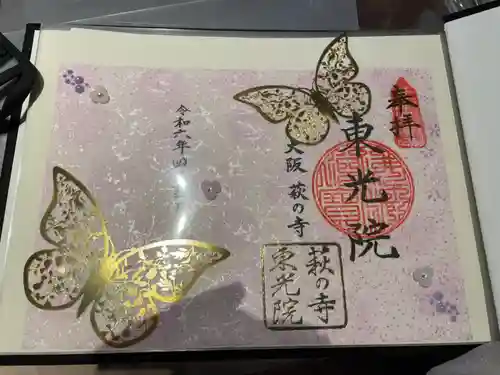 奉拝
東光院
大阪 萩の寺
萩の寺
東光院
令和六年四